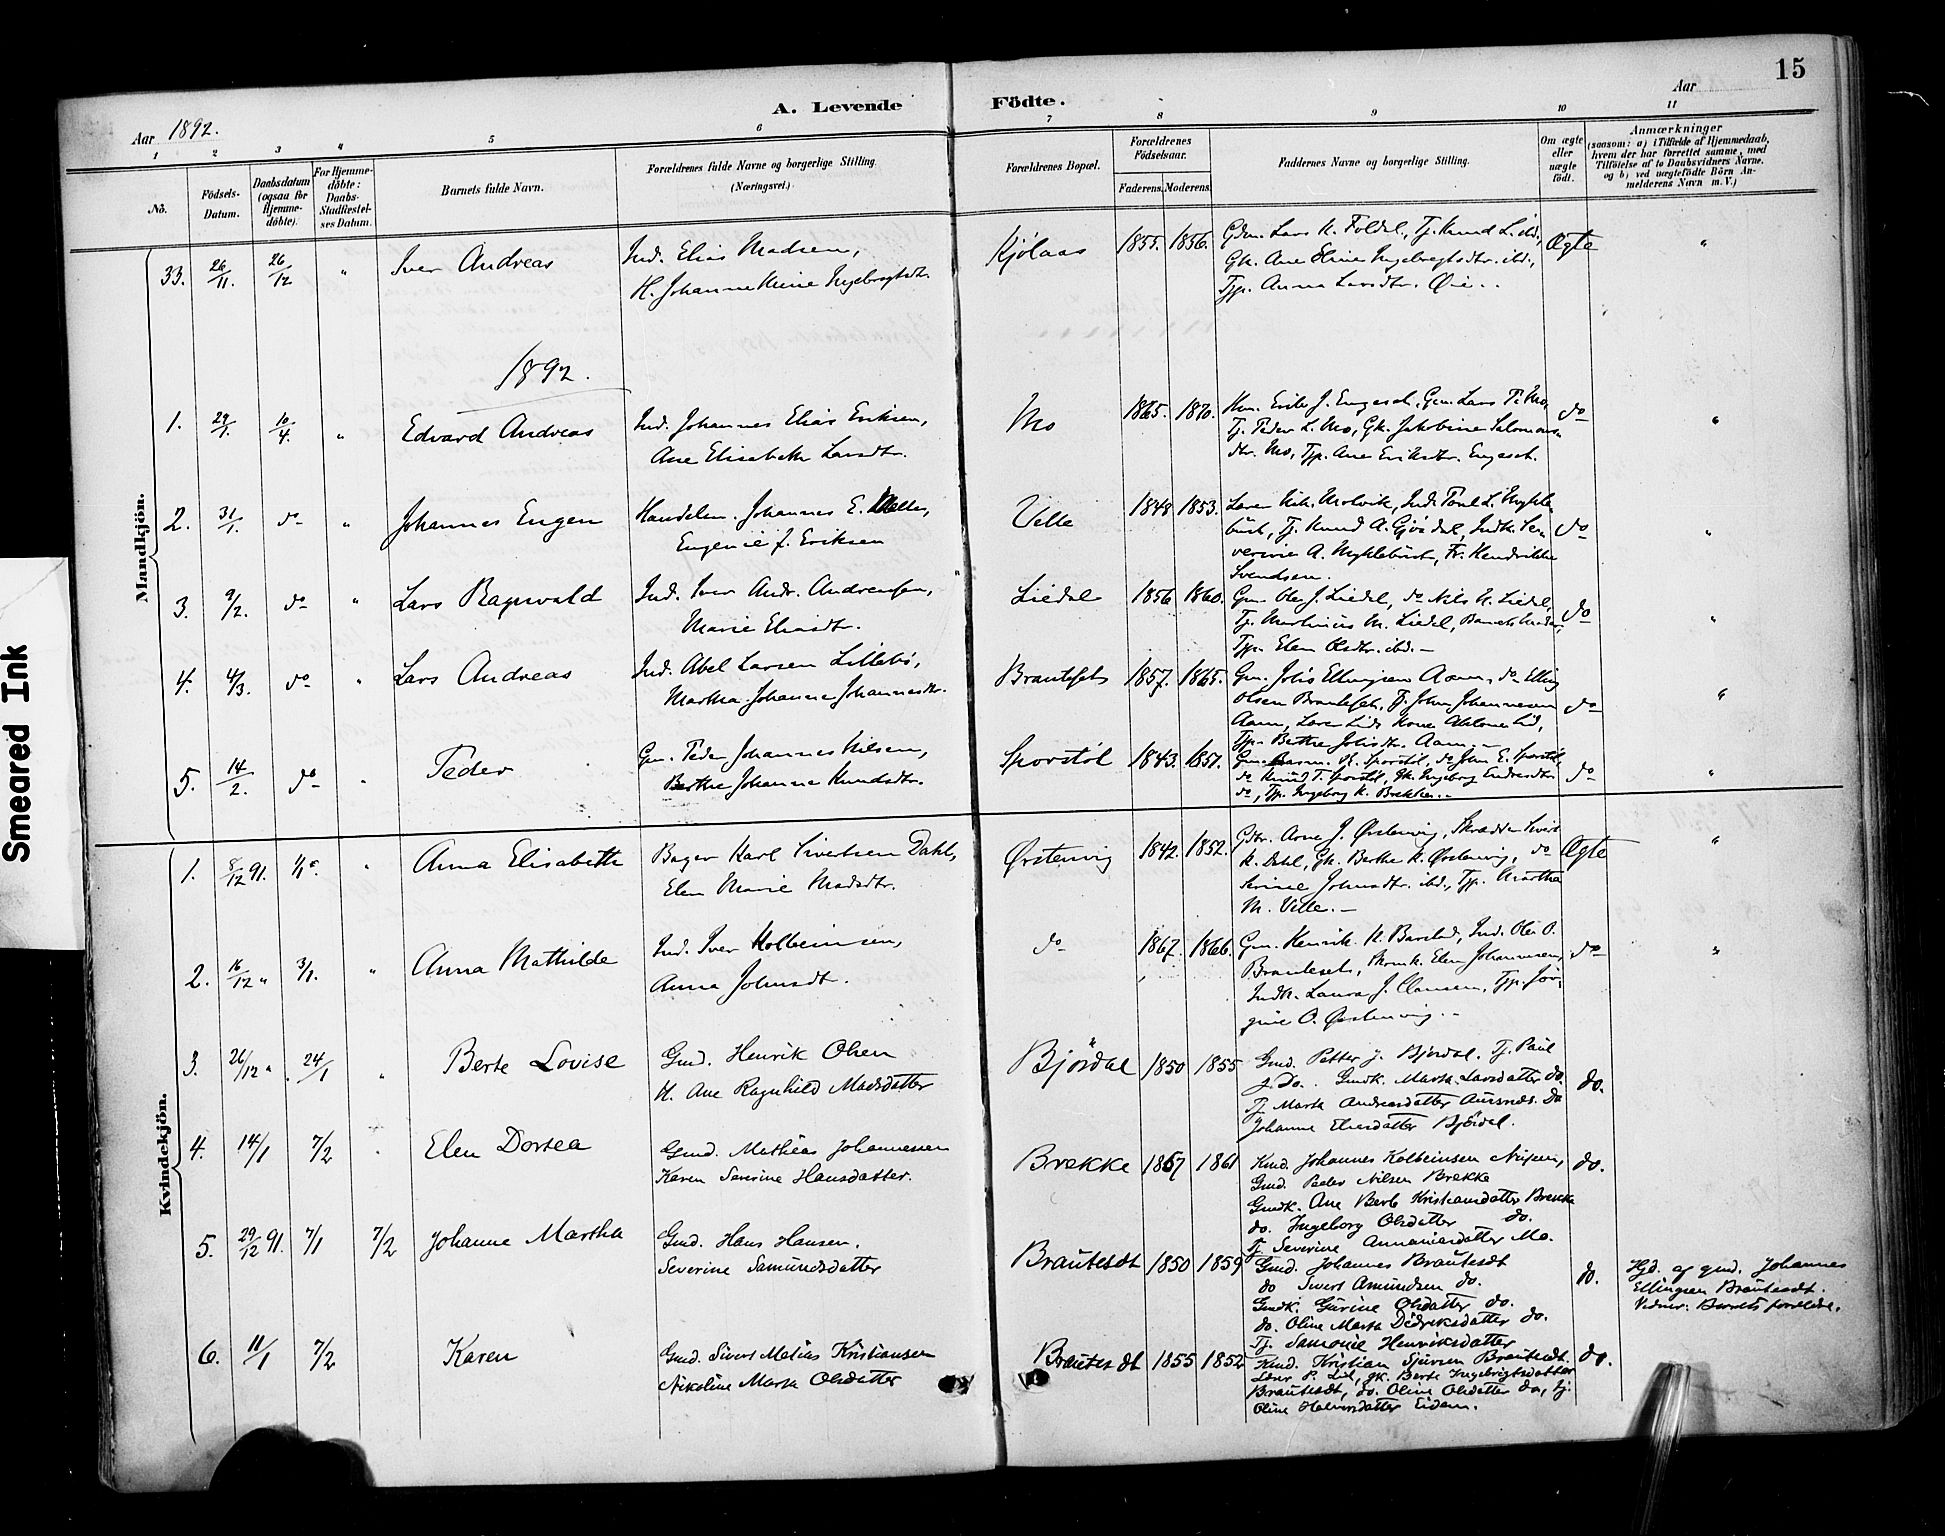 15
A. Levende Födte.
Aar 1892. Aar
1 2 3 4 5 6 7 8 9 10 11
No.
Födsels-Datum.
Daabsdatum (ogsaa for Hjemme-döbte).
For Hjemme-döbte: Daabs-Stadfæstel-ses Datum.
Barnets fulde Navn.
Forældrenes fulde Navne og borgerlige Stilling.
(Næringsvei).
Forældrenes Bopæl.
Forældrenes Födselsaar.
Faderens. Moderens.
Faddernes Navne og borgerlige Stilling.
Om ægte eller uægte födt.
Anmærkninger
(saasom: a) i Tilfælde af Hjemmedaab, hvem der har forrettet samme, med Tilföielse af to Daabsvidners Navne, og b) ved uægtefödte Börn An-melderens Navn m. V.)
Mandkjön.
33. 26/11. 26/12 " Iver Andreas
Ind. Elias Madsen,
H. Johanne Ingebrigtsdtr.
Kjölaas 1855. 1856.
Gdm. Lars K. Foldal, Tj. Knud L. ibd.,
Gk. Ane Eline Ingebregtsdtr. ibd.,
Tjp. Anna Larsdtr. Øie..
Ægte "
1892.
1. 29/1. 10/4. " Edvard Andreas
Ind. Johannes Elias Eriksen,
Ane Elisabeth Larsdtr.
Mo 1865. 1870.
Erik J. Engeset, Gm. Lars P. Mo,
Tj. Peder L. Mo, Gk. Jakobine Salomons-
dtr. Mo, Tjp. Ane Eriksdtr. Engeset.
do "
2. 31/1. do " Johannes Eugen
Handelsm. Johannes E. Velle,
Eugenie f. Eriksen
Velle 1848 1853.
Lærer Nik. Molvik, Ind. Poul L. Mykle-
büst, Tj. Knud A. Gjördal, Indk. Se-
verine A. Myklebüst, Fr. Hendrikke
Svendsen.
do "
3. 9/2. do " Lars Ragnvald
Ind. Iver Andr. Andreassen,
Marie Eliasdtr.
Liedal 1856 1860.
Gm. Ole J. Liedal, do Nils N. Liedal,
Tj. Martinus M. Liedal, Barnets Moder,
Tjp. Elen Olsdtr. ibd. —
do "
4. 4/3. do " Lars Andreas
Ind. Abel Larsen Lillebö,
Martha Johanne Johannesdtr.
Brauteset 1857. 1865.
Gm. Johs Ellingsen Aam, do Elling
Olsen Brauteset, Tj. John Johannesen
Aam, Lærer Lids Kone Lid,
Tjp. Berthe Johsdtr. Aam. —
do "
5. 14/2. do " Peder
Gm. Peder Johannes Nilsen,
Berthe Johanne Knudsdtr.
Sporstöl 1843. 1857.
Gm. Rasm. K. Sporstöl, do John E. Sporstöl,
do Knud T. Sporstöl, Gk. Ingeborg Endresdtr.
do, Tjp. Ingeborg K. Brekke. –
do "
Kvindekjön.
1. 8/12 91. " Anna Elisabeth
Bager Karl Sivertsen Dahl,
Elen Marie Madsdtr.
Ørstenvig 1842. 1852.
Gdbr. Arne J. Ørstenvig, Skrædder Sivert
K. Dahl, Gk. Berthe K. Ørstenvig, do
Serine Johnsdtr. ibd., Tjp. Martha
M. Velle. —
Ægte "
2. 16/12 " 3/1. " Anna Mathilde
Ind. Iver Kolbeinsen,
Anna Johnsdtr.
do 1867. 1866.
Gm. Henrik K. Barstad, Ind. Ole O.
Brauteset, Elen Johannesen,
Indk. Laura J. Clausen, Tjp. Jör-
gine O. Ørstenvig. -
do "
3. 26/12 " 24/1 " Berte Lovise
Gmd. Henrik Olsen
H. Ane Ragnhild Madsdatter
Björdal 1850 1855
Gmd. Petter J. Björdal. Tj. Paul
J. Do. Gmdk. Marta Larsdatter do.
Tj. Marta Andreasdatter Aursnes. Do
Johanne Eliasdatter Björdal.
do.
4. 14/1 7/2 " Elen Dortea
Gmd. Mathias Johannessen
Karen Severine Hansdatter.
Brekke 1867 1861
Kmd. Johannes Kolbeinsen Nupen,
Gmd. Peder Nilsen Brekke
Gmdk. Ane Berb Kristiansdatter Brekke
do. Ingeborg Olsdatter do.
Tj. Severine Annaniasdatter Mo.
do.
5. 29/12 91. 7/1 7/2 Johanne Martha
Gmd. Hans Hansen.
Severine Samundsdatter
Brautesdt 1850 1859
Gmd. Johannes Brautesdt
do Sivert Amundsen do.
Gmdk. Gurine Olsdatter do.
do. Oline Marta Didriksdatter do.
Tj. Samonie Henriksdatter
do.
Hjd. af gmd. Johannes
Ellingsen Brautesdt.
Vidner: Barnets forældre.
6. 11/1 7/2 Karen
Gmd. Sivert Matias Kristiansen
Nikoline Marta Olsdatter
Brautesdt 1855 1852
Kmd. Kristian Sjursen Brautesdt.
Lærer P. Lid, gk. Berte Ingebrigtsdatter
Brautesdt, do. Oline Olsdatter do, tj.
Oline Halvorsdatter Eidem.
do.
Smeared Ink